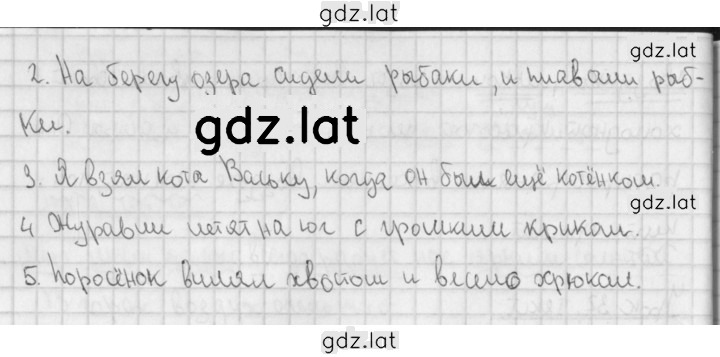 gdz.lat
gdz.lat
2. На берегу озера сидели рыбаки, и плавали рыб-
gdz.lat
ки.
3. Я взял кота Ваську, когда он был ещё котёнком.
gdz.lat
4 Журавли летят на юг с громким криком.
5. Поросёнок вилял хвостом и весело хрюкал.
gdz.lat